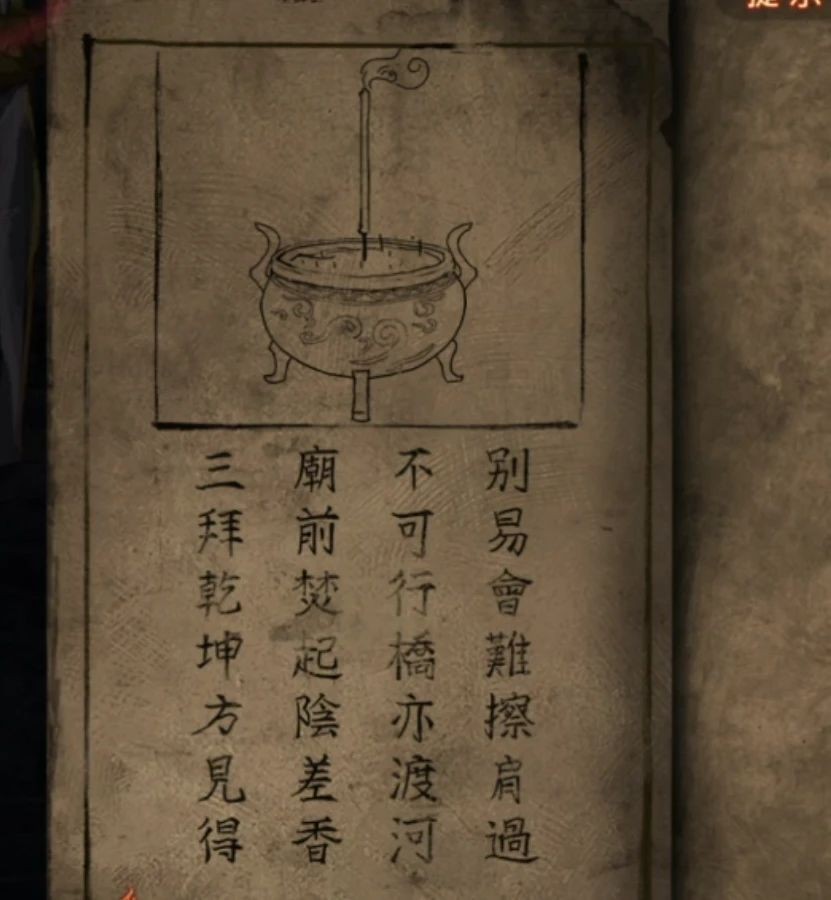 别易會難擦肩過
不可行橋亦渡河
廟前焚起陰差香
三拜乾坤方見得